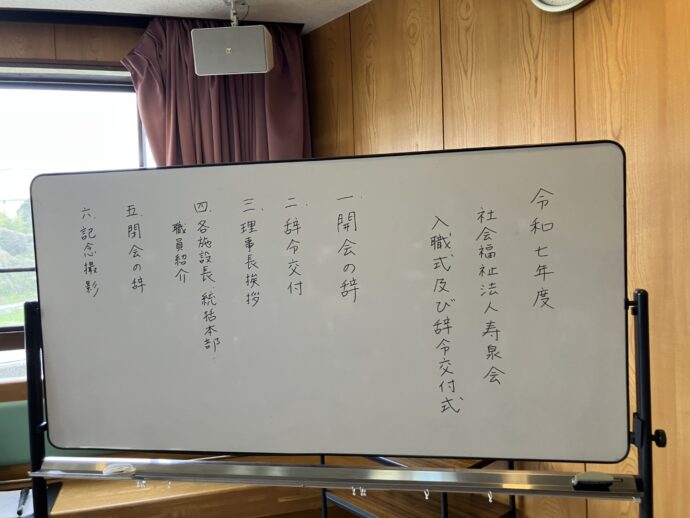 令和七年度
社会福祉法人寿泉会
入職式及び辞令交付式
一.開会の辞
二.辞令交付
三.理事長挨拶
四.各施設長、統括本部.
職員紹介
五.閉会の辞
六.記念撮影